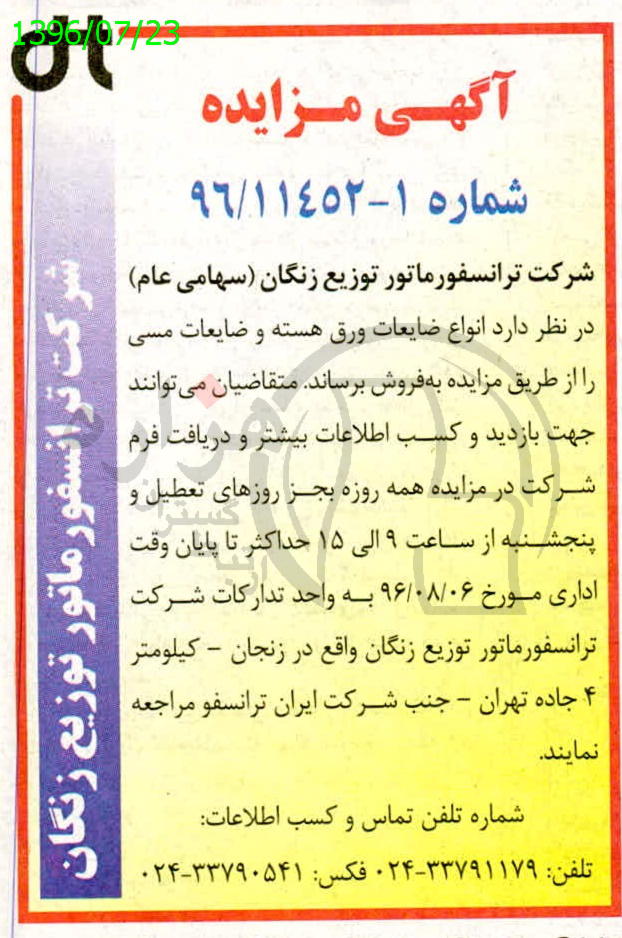 1396/07/23
آگهی مزایده
شماره ۱-۹۶/۱۱٤٥۲
شرکت ترانسفورماتور توزیع زنگان (سهامی عام)
در نظر دارد انواع ضایعات ورق هسته و ضایعات مسی
را از طریق مزایده به‌فروش برساند. متقاضیان می‌توانند
جهت بازدید و کسب اطلاعات بیشتر و دریافت فرم
شرکت در مزایده همه روزه بجز روزهای تعطیل و
پنجشنبه از ساعت ۹ الی ۱۵ حداکثر تا پایان وقت
اداری مورخ ۹۶/۰۸/۰۶ به واحد تدارکات شرکت
ترانسفورماتور توزیع زنگان واقع در زنجان – کیلومتر
۴ جاده تهران – جنب شرکت ایران ترانسفو مراجعه
نمایند.
شماره تلفن تماس و کسب اطلاعات:
تلفن: ۳۳۷۹۱۱۷۹-۰۲۴ فکس: ۳۳۷۹۰۵۴۱-۰۲۴
شرکت ترانسفورماتور توزیع زنگان
هزاره
گستران